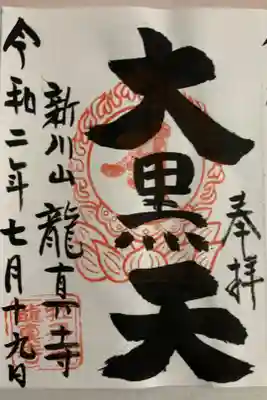 奉拝
大黒天
新川山龍真寺
令和二年七月十九日